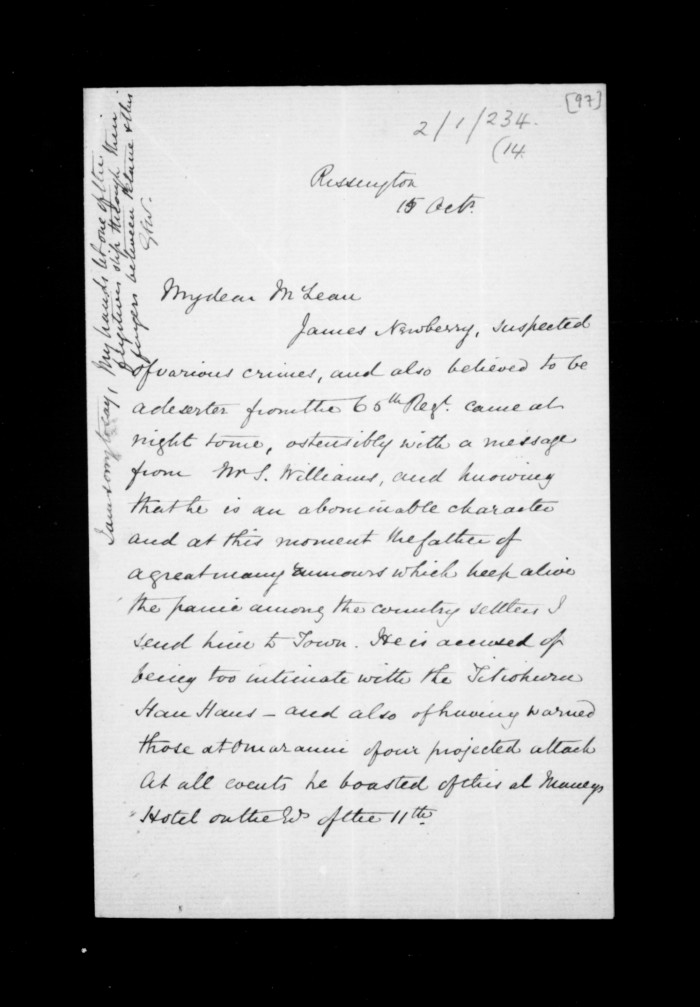 [97]
2/1/234.
(14.
Rissington
15 Octr.
My dear McLean
James Newberry, suspected
of various crimes, and also believed to be
a deserter from the 65th Regt. came at
night to me, ostensibly with a message
from Mr S. Williams, and knowing
that he is an abominable character
and at this moment the father of
a great many rumours which keep alive
the panic among the country settlers I
send him to Town. He is accused of
being too intimate with the Titiokura
Hau Haus – and also of having warned
those at Omaranui of our projected attack
At all events he boasted of this at Maneys
Hotel on the Ed of the 11th.
I am sorry to say, My hands let one of the
fugitives slip through their
fingers between Petane & this
GSW.